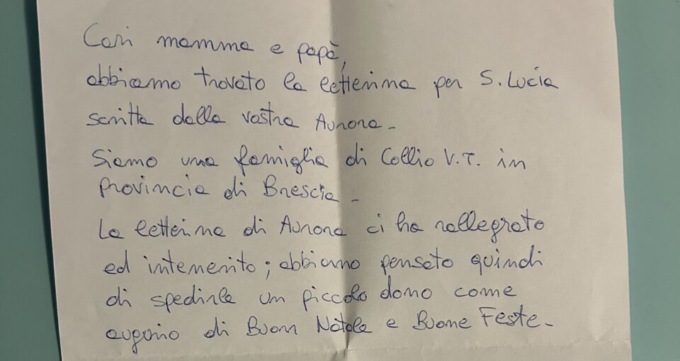 Cari mamma e papà,
abbiamo trovato la letterina per S. Lucia
scritta dalla vostra Aurora.
Siamo una famiglia di Collio V.T. in
Provincia di Brescia.
La letterina di Aurora ci ha rallegrato
ed intenerito; abbiamo pensato quindi
di spedirle un piccolo dono come
augurio di Buon Natale e Buone Feste.